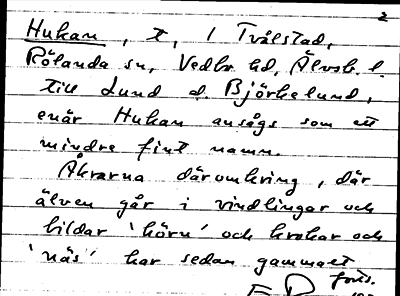 2
Hukan, t, i Tvålstad,
Rölanda sn, Vedbo hd, Älvsb. l.
till Lund el. Björkelund,
enär Hukan ansågs som ett
mindre fint namn.
Åkrarna däromkring, där
älven går i vindlingar och
bildar 'hörn' och krokar och
'näs' har sedan gammalt
forts.